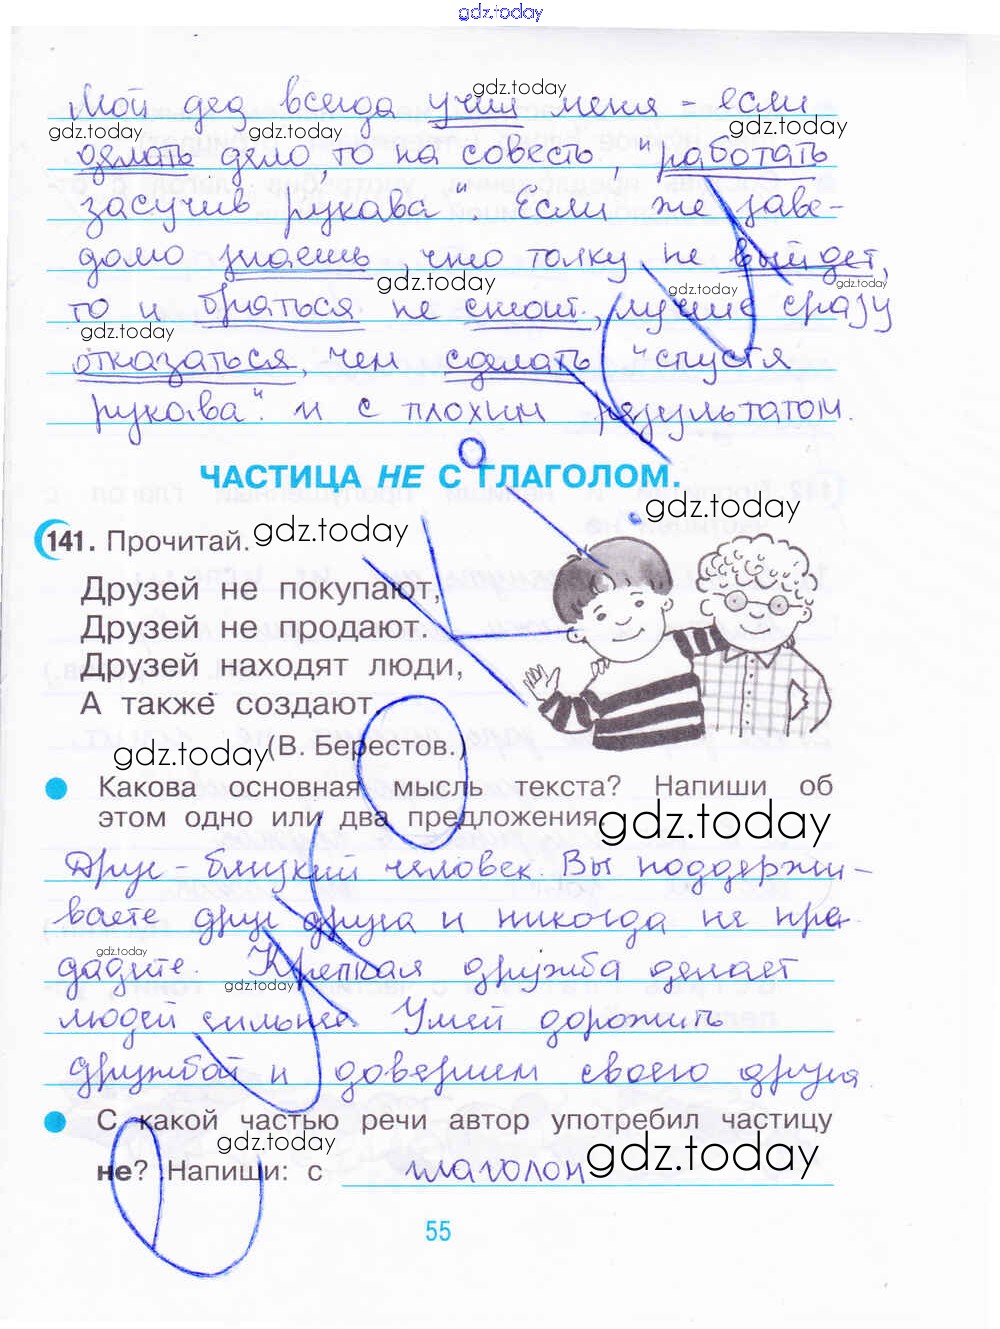 gdz.today
Мой дед всегда учил меня - если
gdz.today
gdz.today gdz.today gdz.today
делать дело, то на совесть, "работать
засучив рукава" Если же заве-
домо знаешь, что толку не выйдет,
gdz.today gdz.today
то и браться не стоит, лучше сразу
gdz.today
отказаться, чем сделать "спустя
рукава" и с плохим результатом.
ЧАСТИЦА НЕ С ГЛАГОЛОМ.
gdz.today
141. Прочитай. gdz.today
Друзей не покупают,
Друзей не продают.
Друзей находят люди,
А также создают.
gdz.today (В. Берестов.)
Какова основная мысль текста? Напиши об
этом одно или два предложения. gdz.today
Друг - близкий человек. Вы поддержи-
ваете друг друга и никогда не пре-
gdz.today
дадите. Крепкая дружба делает
gdz.today
людей сильнее. Умей дорожить
дружбой и доверием своего друга.
С какой частью речи автор употребил частицу
gdz.today
не? Напиши: с глаголом gdz.today
55